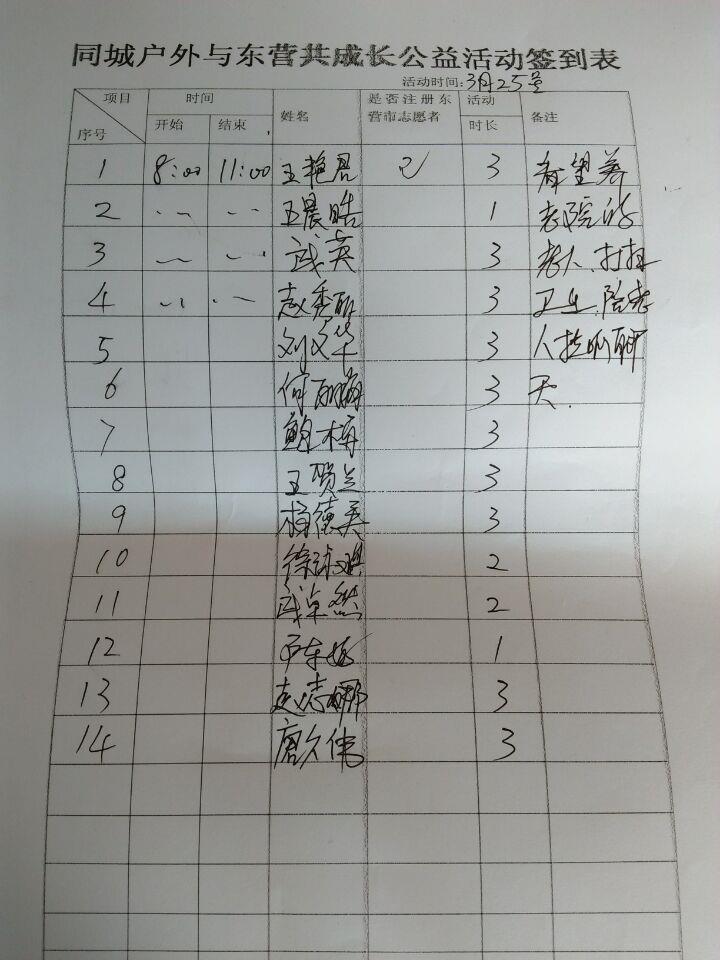 同城户外与东营共成长公益活动签到表
活动时间:3月25号
项目 时间 姓名 是否注册东 活动 备注
序号 开始 结束 营市志愿者 时长
1 8:00 11:00 王艳君 已 3 希望养
2 〃 〃 王晨皓 1 老院的
3 〃 〃 武英 3 老人、打扫
4 〃 〃 赵秀丽 3 卫生、陪老
5 刘文华 3 人拉呱聊
6 何丽梅 3 天.
7 鲍梅 3
8 王贤兰 3
9 杨德英 3
10 徐琪 2
11 武卓然 2
12 东 1
13 赵志娜 3
14 唐久伟 3